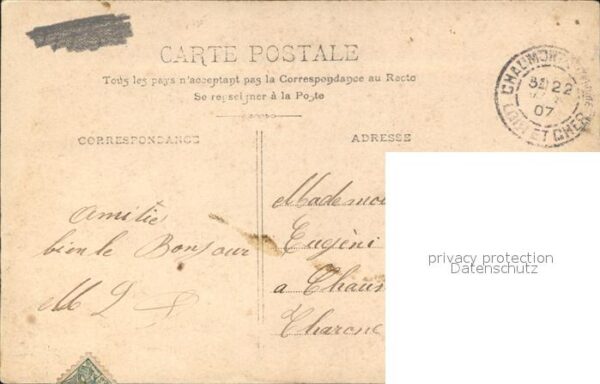 CARTE POSTALE
Tous les pays n'acceptant pas la Correspondance au Recto
Se renseigner à la Poste
CORRESPONDANCE
ADRESSE
CHAUMONT
22
07
LOIR ET CHER
Amitié
bien le Bonjour
M L
Mademoi
Eugéni
a Chaum
Tharone
privacy protection
Datenschutz